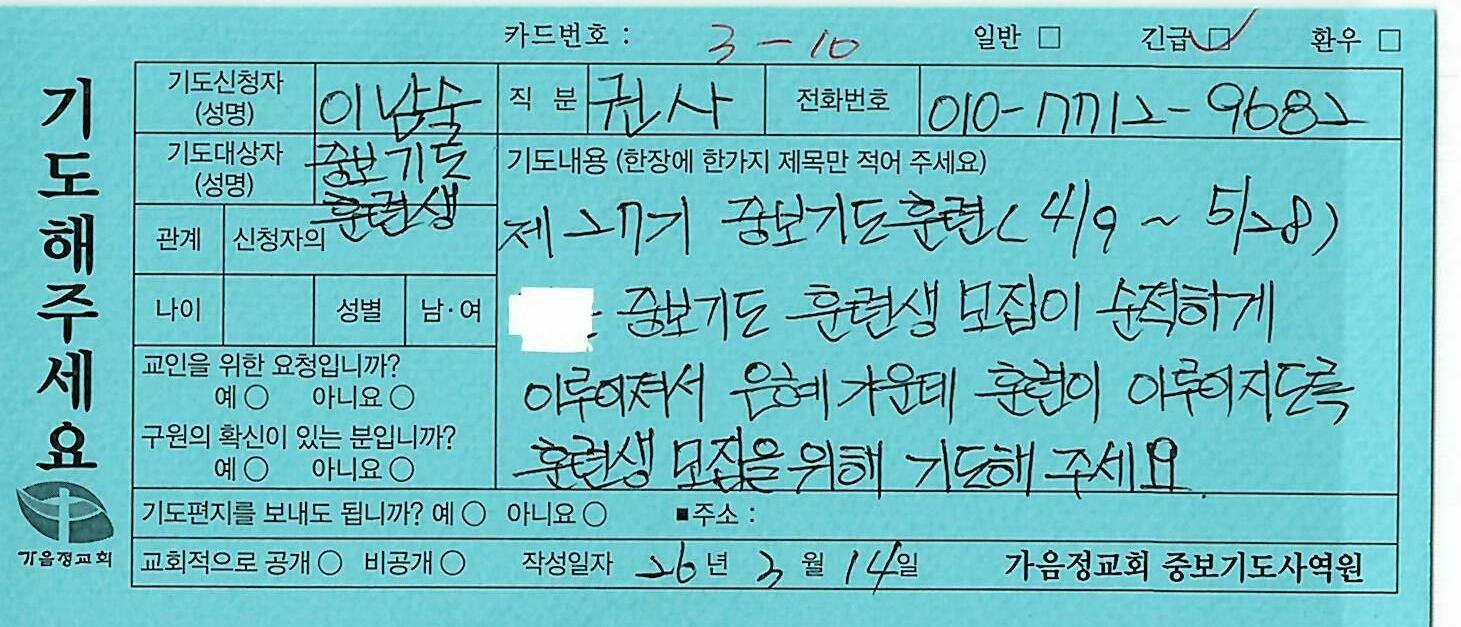 카드번호 : 3-10 일반 □ 긴급 ☑ 환우 □
기도해주세요
가음정교회
기도신청자 (성명) 이남술 직 분 권사 전화번호 010-7712-9682
기도대상자 (성명) 중보기도 훈련생
관계 신청자의
나이 성별 남·여
교인을 위한 요청입니까?
예 ○ 아니요 ○
구원의 확신이 있는 분입니까?
예 ○ 아니요 ○
기도내용 (한장에 한가지 제목만 적어 주세요)
제 27기 중보기도훈련(4/9 ~ 5/28)
: 중보기도 훈련생 모집이 순적하게
이루어져서 은혜 가운데 훈련이 이루어지도록
훈련생 모집을 위해 기도해 주세요
기도편지를 보내도 됩니까? 예 ○ 아니요 ○ ■주소 :
교회적으로 공개 ○ 비공개 ○ 작성일자 26년 3월 14일 가음정교회 중보기도사역원